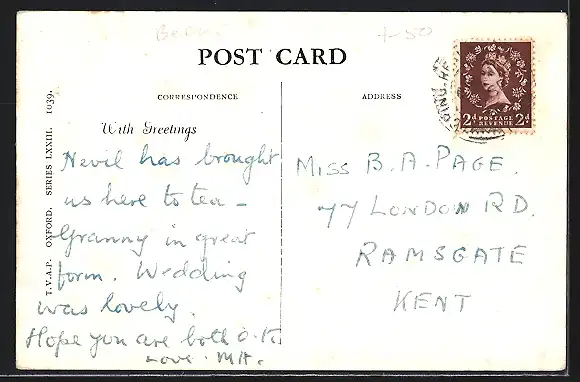 Beer
4-50
POST CARD
CORRESPONDENCE
ADDRESS
2d POSTAGE REVENUE 2d
With Greetings
T.V.A.P. OXFORD. SERIES LXXIII. 1039.
Nevil has brought
us here to tea -
Granny in great
form. Wedding
was lovely.
Hope you are both O.K.
Love. MH.
MISS B. A. PAGE.
77 LONDON RD.
RAMSGATE
KENT